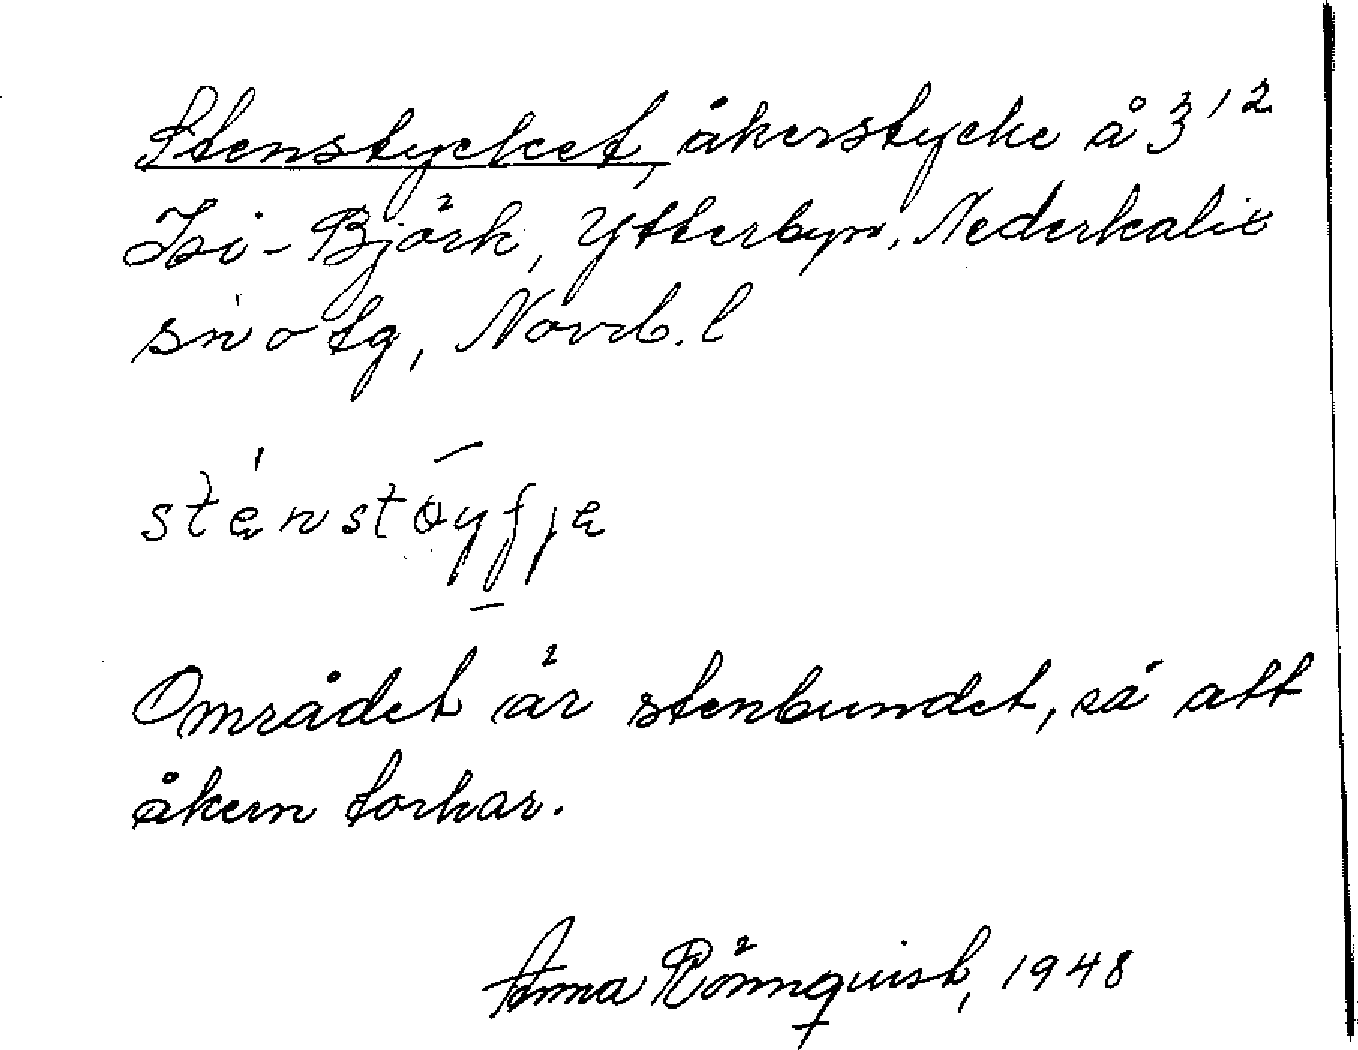 Stenstycket, åkerstycke å 3¹²
Isi-Björk, Ytterbyn, Nederkalix
sn o tg, Norrb. l
sténstöyfje
Området är stenbundet, så att
åkern torkar.
Anna Rönnquist, 1948